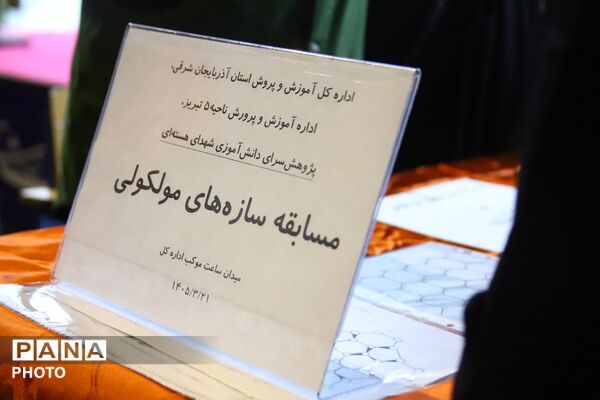 اداره کل آموزش و پروش استان آذربایجان شرقی،
اداره آموزش و پرورش ناحیه۵ تبریز،
پژوهش‌سرای دانش‌آموزی شهدای هسته‌ای
مسابقه سازه‌های مولکولی
میدان ساعت موکب اداره کل
۱۴۰۵/۳/۲۱
PANA
PHOTO